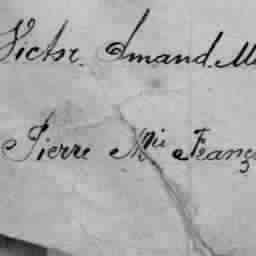 Victor Amand M
Pierre Mie Franç